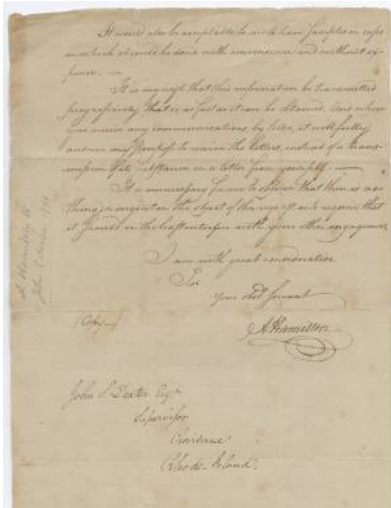 It would also be acceptable to me to have samples in cases
in which it could be done with convenience and without ex-
pence. —
It is my wish that this information be transmitted
progressively, that is as fast as it can be obtained. And where
you receive any communications, by letter, it will fully
answer my purpose to receive the letters, instead of a trans-
mission of its substance in a letter from yourself. —
It is unnecessary for me to observe that there is no
thing so urgent in the object of this request as to require that
it should in the least interfere with your other engagements
I am with great consideration
Sir
Your obed Servant
(Copy)
A Hamilton
John S Dexter Esqr
Supervisor
Providence
Rhode-Island.
A Hamilton to
John S Dexter 1791